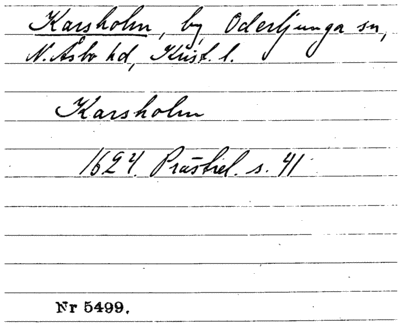 Karsholm, by, Oderljunga sn,
N. Åsbo hd, Krist. l.
Karsholm
1624. Prästrel. s. 41
Nr 5499.